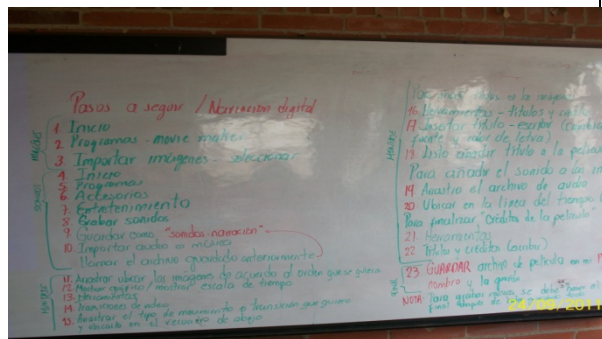 Pasos a seguir / Narración digital
1 Inicio
2 Programas - movie maker
3. Importar imágenes - seleccionar
4 Inicio
5 Programas
6 Accesorios
7. Entretenimiento
8. Grabar sonidos
9 Guardar como, "sonidos-naración"
10. Importar audio o música
(llamar el archivo guardado anteriormente)
11. Arrastrar ubicar las imágenes de acuerdo al orden que se quiera
12 mostrar escala de tiempo
13. Herramientas
14 Transiciones de video
15. Arrastrar el tipo de movimiento o transición que quiera
y ubicarla en el recuadro de abajo
IMAGENES
SONIDO
16 Herramientas - títulos y
17 Insertar título - escribir (cambiar
fuente y color de letra)
18 Listo añadir título a la película
Para añadir el sonido a las
19 Arrastro el archivo de audio
20 Ubicar en la línea del tiempo
Para finalizar "Créditos de la película"
21. Herramientas
22 Títulos y créditos (escribir)
23 GUARDAR archivo de película en mi
nombro y la
NOTA Para grabar se debe
24/09/2011